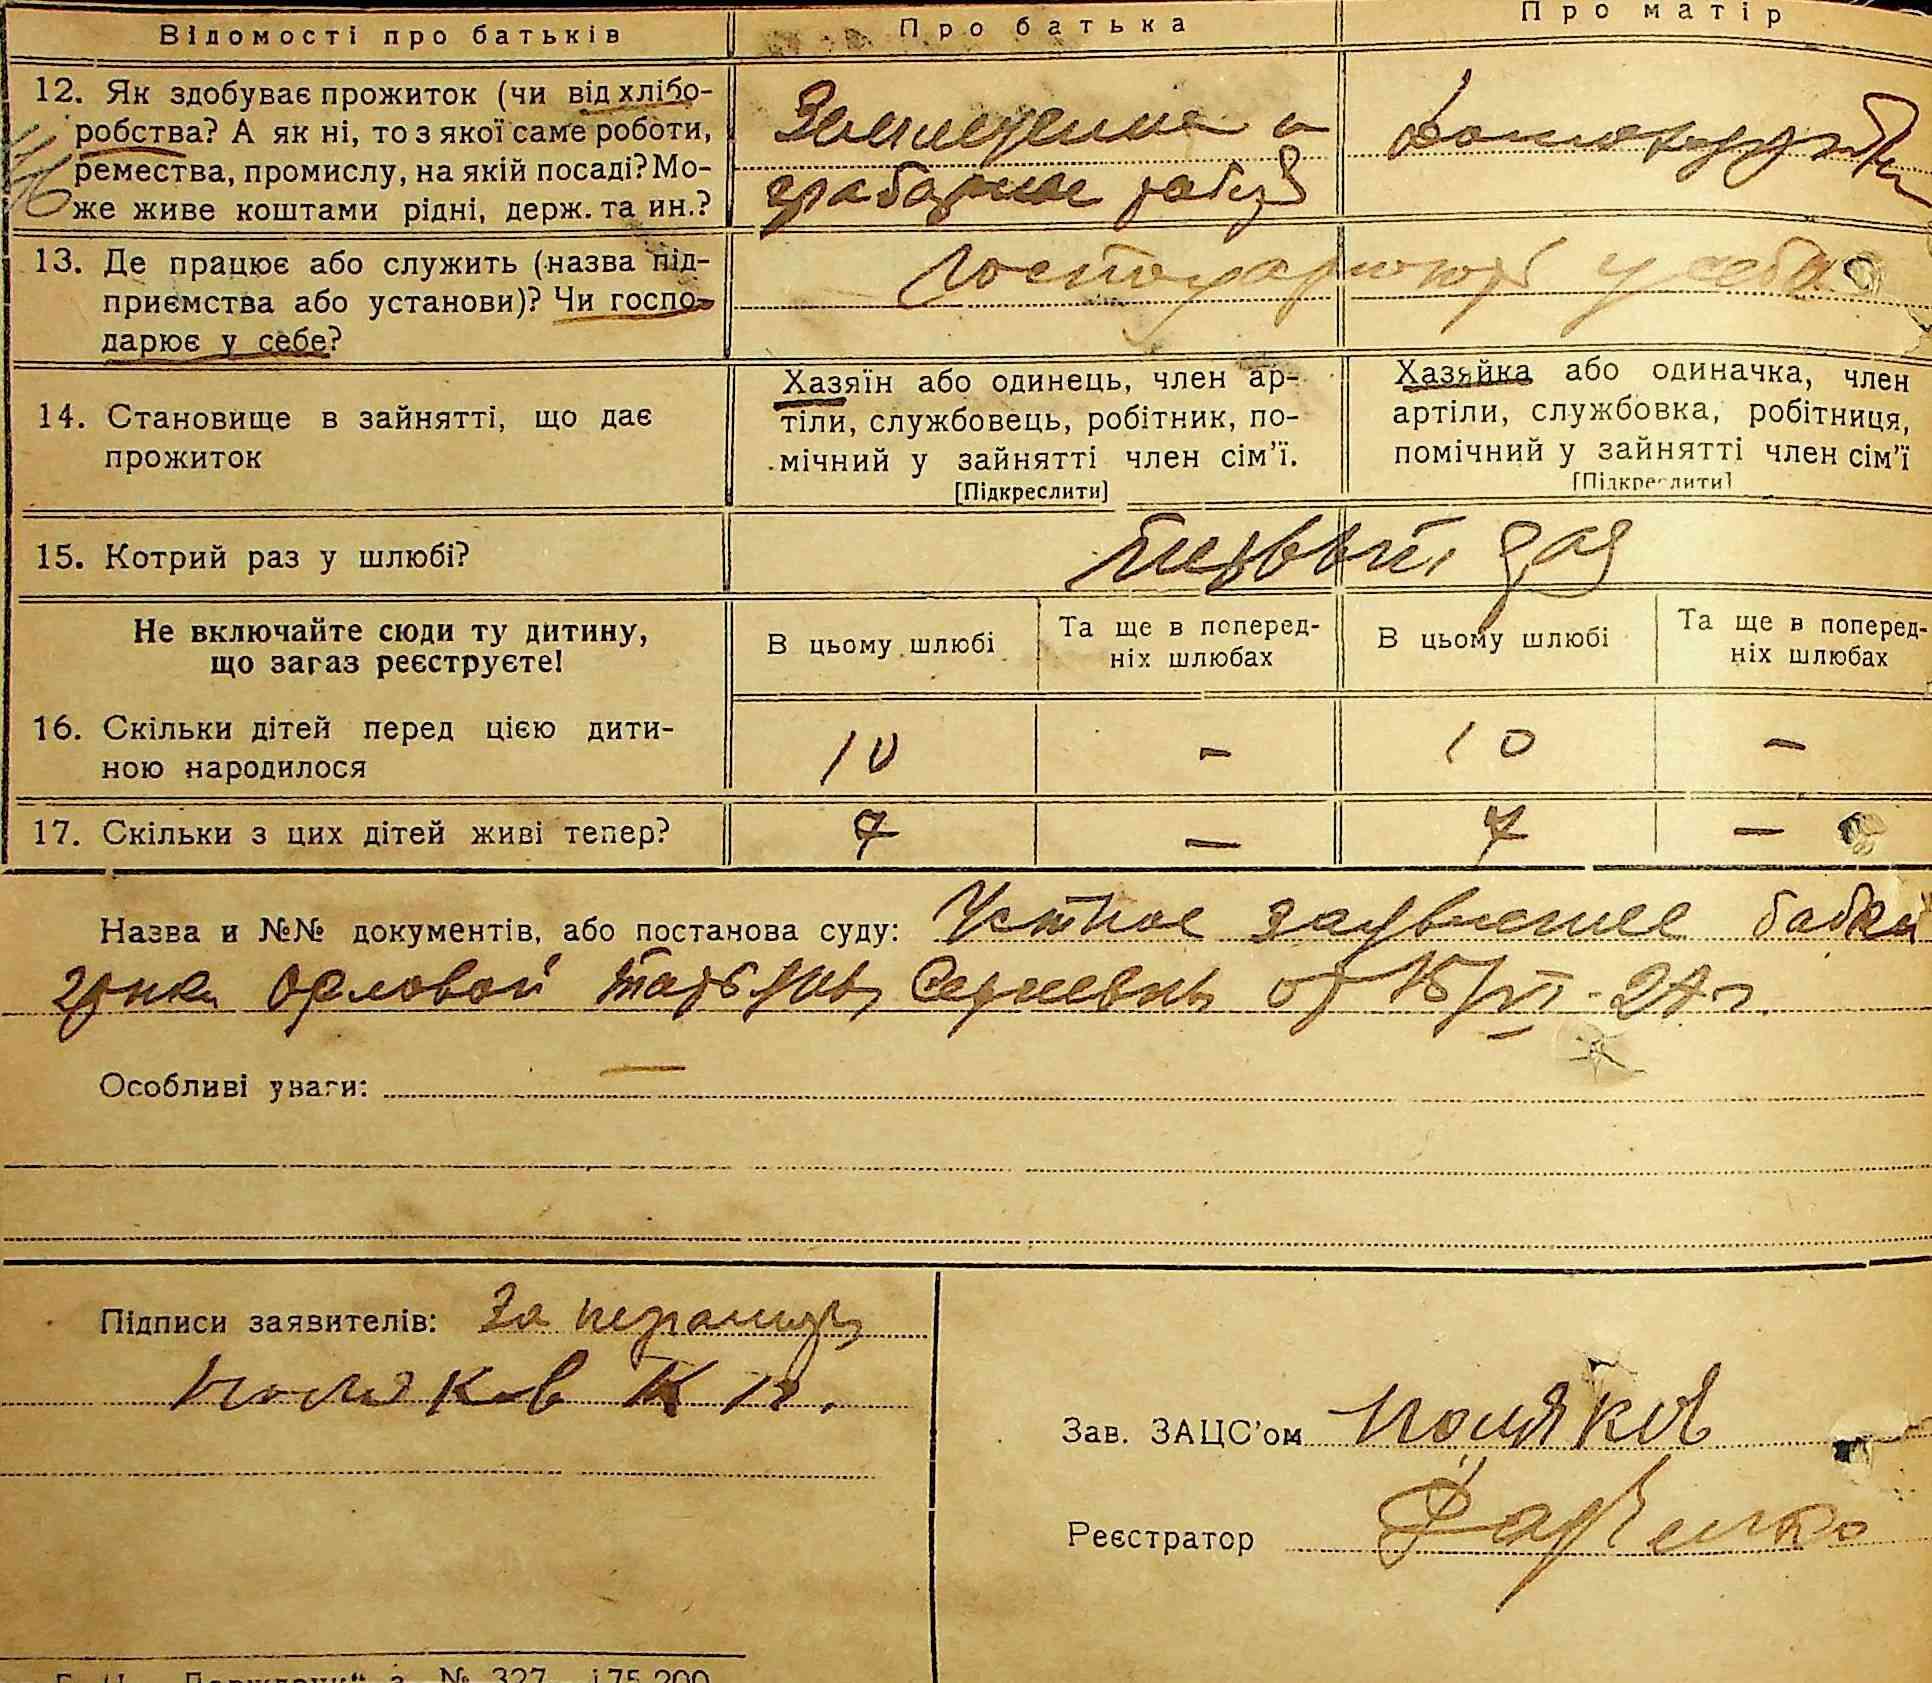 Відомості про батьків
Про батька
Про матір
12. Як здобуває прожиток (чи від хлібо-
робства? А як ні, то з якої саме роботи,
ремества, промислу, на якій посаді? Мо-
же живе коштами рідні, держ. та ин.?
Земледелие и
грабарные
13. Де працює або служить (назва під-
приємства або установи)? Чи госпо-
дарює у себе?
у себе
14. Становище в зайнятті, що дає
прожиток
Хазяїн або одинець, член ар-
тіли, службовець, робітник, по-
мічний у зайнятті член сім'ї.
[Підкреслити]
Хазяйка або одиначка, член
артіли, службовка, робітниця,
помічний у зайнятті член сім'ї
[Підкреслити]
15. Котрий раз у шлюбі?
первый раз
Не включайте сюди ту дитину,
що загаз реєструєте!
В цьому шлюбі
Та ще в поперед-
ніх шлюбах
В цьому шлюбі
Та ще в поперед-
ніх шлюбах
16. Скільки дітей перед цією дити-
ною народилося
10
-
10
-
17. Скільки з цих дітей живі тепер?
7
—
7
—
Назва и №№ документів, або постанова суду: Устное заявление бабки
гр-нки Орловой Татьяны Сергеевны от 15/VI-27 г.
Особливі уваги: —
Підписи заявителів: За неграмотн
Поляков К П.
Зав. ЗАЦС'ом Поляков
Реєстратор
№ 327 175.200